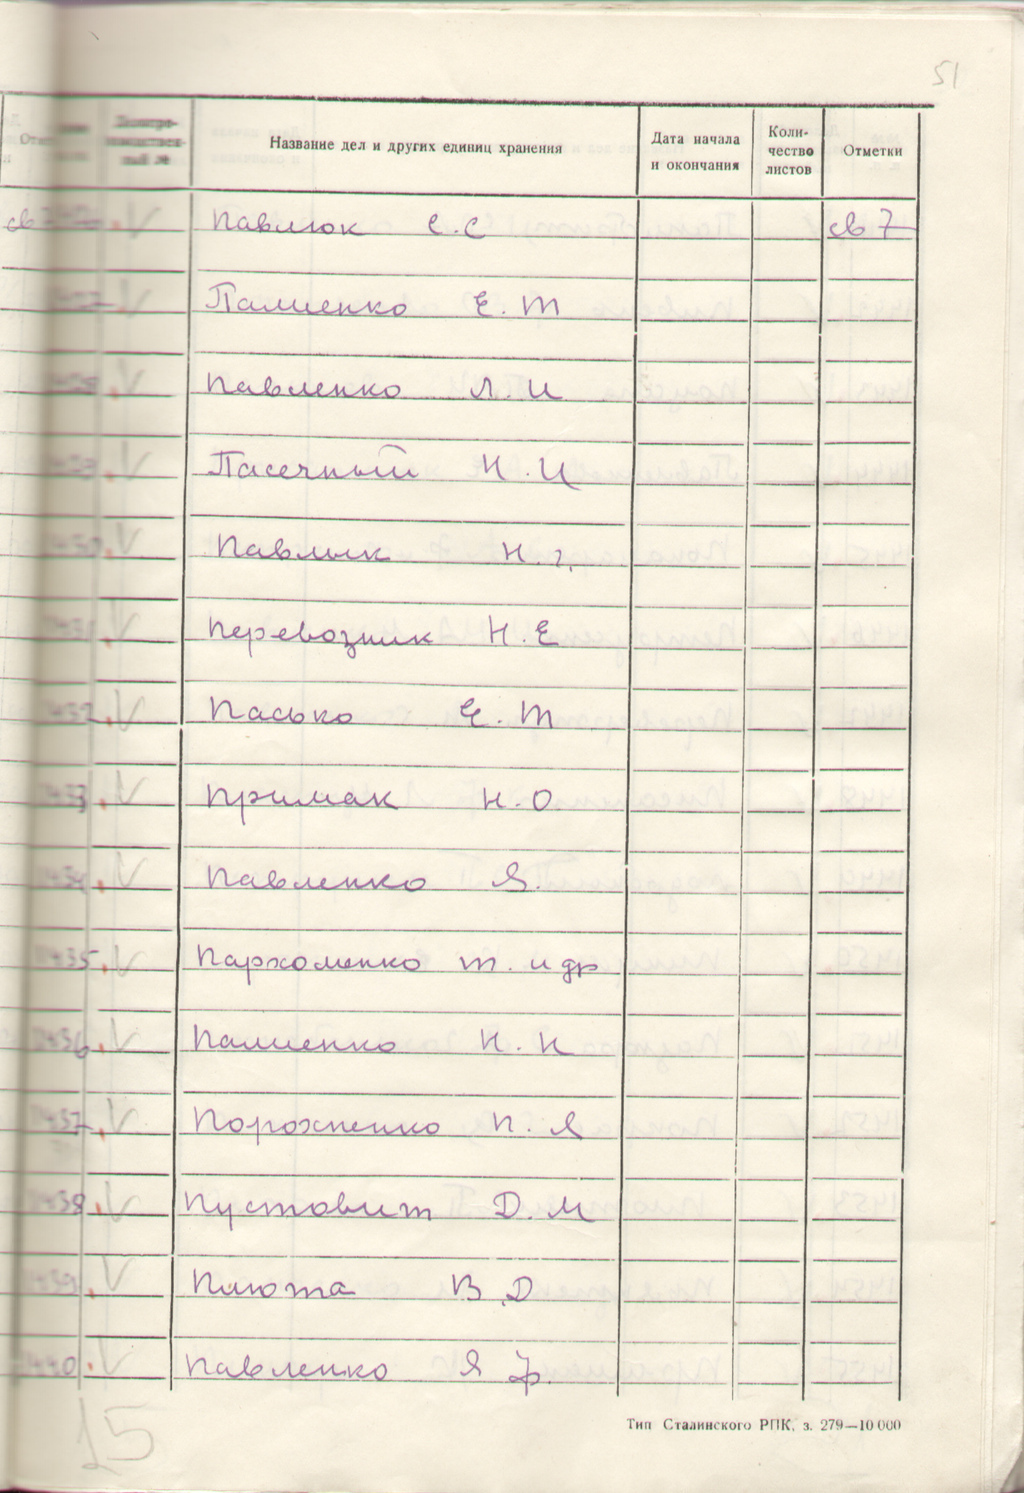 51
Отметки
Название дел и других единиц хранения
Дата начала и окончания
Коли-чество листов
Отметки
св 7 Павлюк Е.С св 7
Палиенко Е.Т
Павленко Л.И
Пасечный Н.И
1430 Павлык Н.г.
1431 Перевозник Н.Е
1432 Пасько Е.Т
1433 Примак Н.О
1434 Павленко Я.
1435 Пархоменко т. и др
1436 Палиенко Н.К
1437 Порохненко П.Я
1438 Пустовит Д.М
1439 Плюта В.Д
1440 Павленко Я Ф.
15
Тип Сталинского РПК, з. 279—10 000